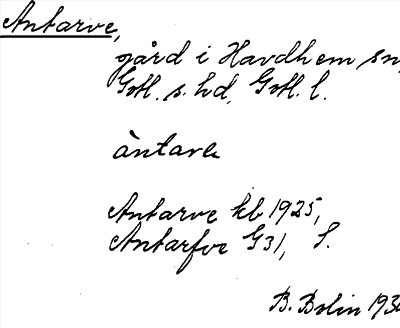 Antarve,
gård i Havdhem sn,
Gotl. s. hd, Gotl. l.
àntarve
Antarve kb 1925,
Antarfve G31, S.
B. Bolin 193